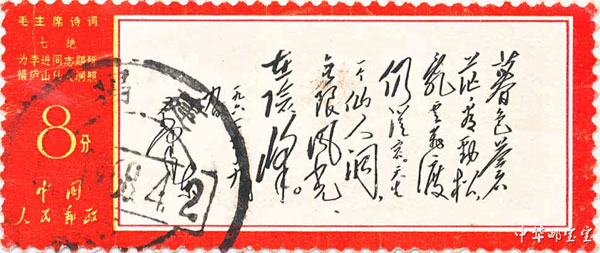 毛主席诗词
七绝
为李进同志题所
摄庐山仙人洞照
8分
中国
人民邮政
暮色苍
茫看劲松,
乱云飞渡
仍從容。天生
一个仙人洞,
无限风光
在险峰。
毛泽东
中华邮宝宝